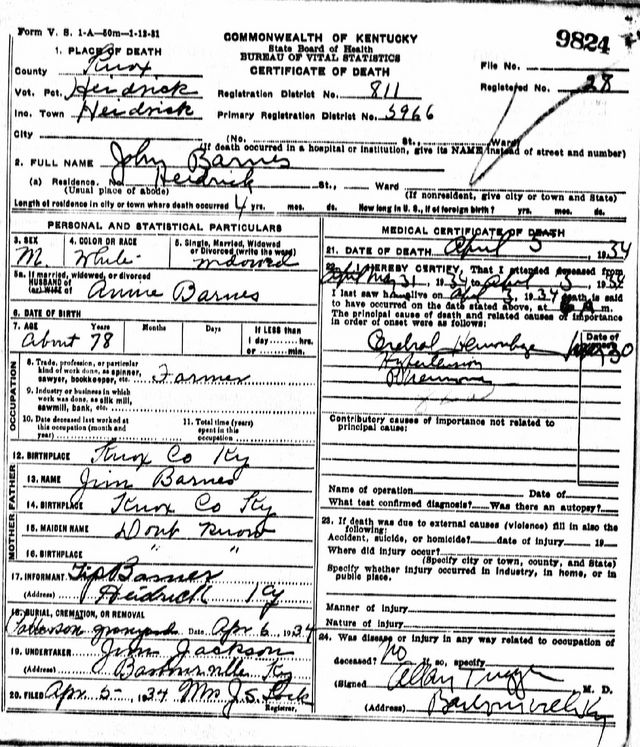 Form V. S. 1-A—50m—1-13-31
COMMONWEALTH OF KENTUCKY
State Board of Health
BUREAU OF VITAL STATISTICS
CERTIFICATE OF DEATH
9824
File No.
Registered No. 28
1. PLACE OF DEATH
County Knox
Vot. Pct. Heidrick
Inc. Town Heidrick
City
Registration District No. 811
Primary Registration District No. 5966
(No. St., Ward)
(If death occurred in a hospital or institution, give its NAME instead of street and number)
2. FULL NAME John Barnes
(a) Residence. No. Heidrick St., Ward
(Usual place of abode) (If nonresident, give city or town and State)
Length of residence in city or town where death occurred 4 yrs. mos. ds. How long in U. S., if of foreign birth? yrs. mos. ds.
PERSONAL AND STATISTICAL PARTICULARS
3. SEX M. 4. COLOR OR RACE White 5. Single, Married, Widowed or Divorced (write the word) Widowed
5a. If married, widowed, or divorced
HUSBAND of
(or) WIFE of Annie Barnes
6. DATE OF BIRTH
7. AGE Years Months Days If LESS than
1 day hrs.
or min.
About 78
OCCUPATION
8. Trade, profession, or particular kind of work done, as spinner, sawyer, bookkeeper, etc. Farmer
9. Industry or business in which work was done, as silk mill, sawmill, bank, etc.
10. Date deceased last worked at this occupation (month and year)
11. Total time (years) spent in this occupation
12. BIRTHPLACE Knox Co Ky
FATHER
13. NAME Jim Barnes
14. BIRTHPLACE Knox Co Ky
MOTHER
15. MAIDEN NAME Dont Know
16. BIRTHPLACE " "
17. INFORMANT Tip Barnes
(Address) Heidrick Ky
18. BURIAL, CREMATION, OR REMOVAL
graveyard Date Apr 6, 1934
19. UNDERTAKER Jim Jackson
(Address) Barbourville Ky
20. FILED Apr 5- 1934 Mrs J S Lock
Registrar.
MEDICAL CERTIFICATE OF DEATH
21. DATE OF DEATH April 5, 1934
22. I HEREBY CERTIFY, That I attended deceased from
31, 1934 to April 5, 1934
I last saw him alive on April 5, 1934 death is said
to have occurred on the date stated above, at m.
The principal cause of death and related causes of importance
in order of onset were as follows:
Date of
Cerebral Hemorrhage 30
Hypertension
Contributory causes of importance not related to
principal cause:
Name of operation Date of
What test confirmed diagnosis? Was there an autopsy?
23. If death was due to external causes (violence) fill in also the
following:
Accident, suicide, or homicide? date of injury 19
Where did injury occur?
(Specify city or town, county, and State)
Specify whether injury occurred in industry, in home, or in
public place.
Manner of injury
Nature of injury
24. Was disease or injury in any way related to occupation of
deceased? No If so, specify
(Signed M. D.
(Address) Barbourville Ky